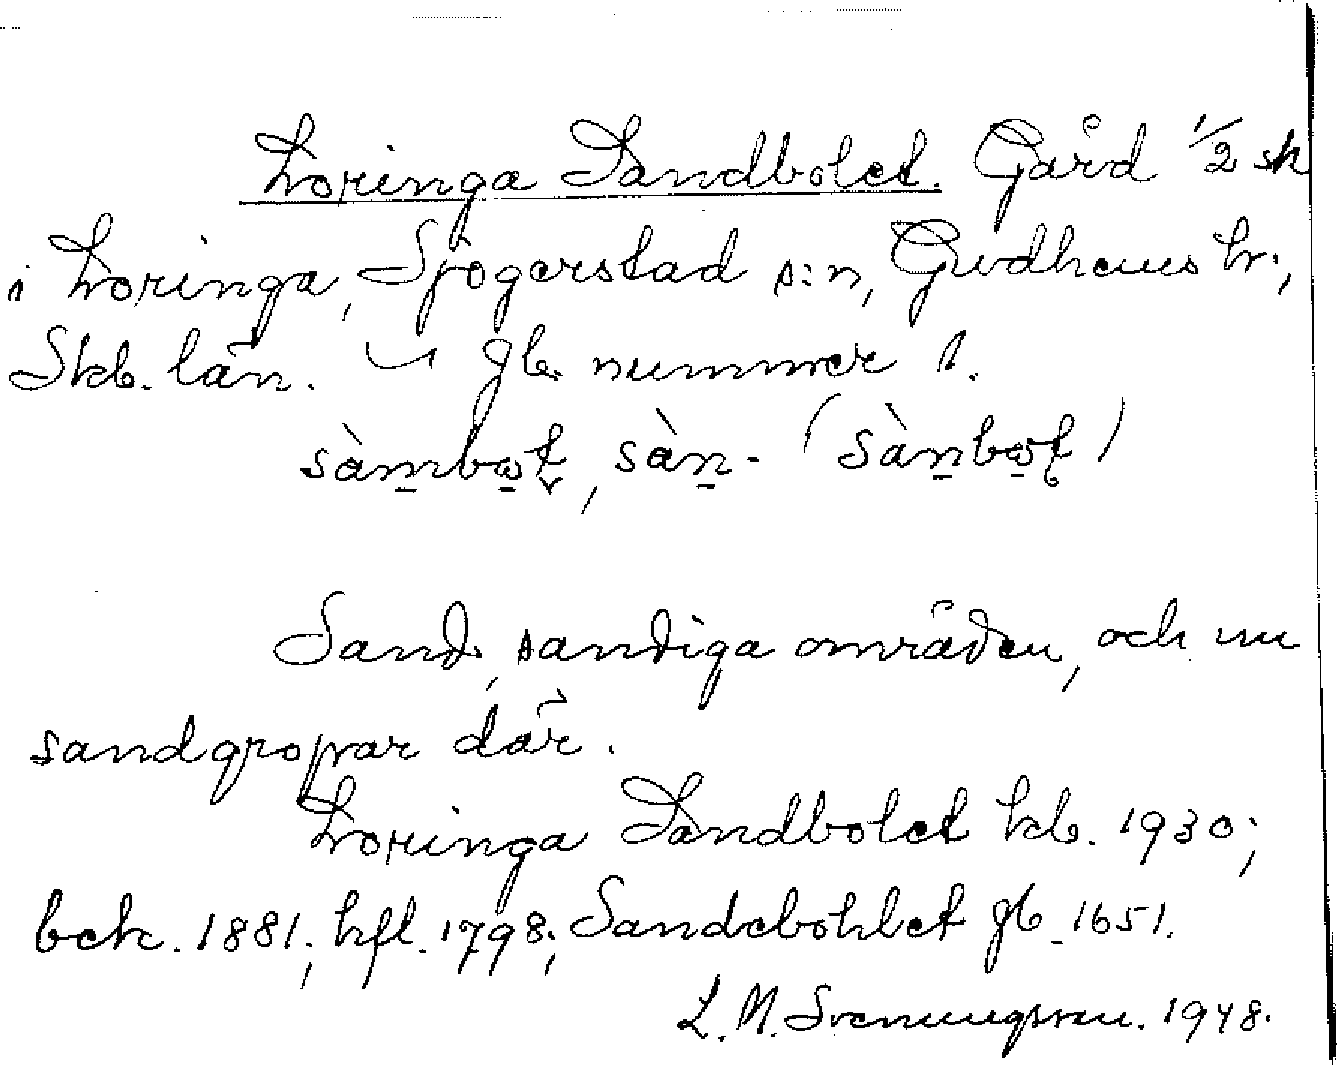 Loringa Sandbolet. Gård 1/2 sk
i Loringa, Sjogerstad s:n, Gudhems hr.,
Skb. län. gb. nummer 1.
sàmboł, sàn- (sànboł)
Sand, sandiga områden, och nu
sandgropar där.
Loringa Sandbolet kb. 1930;
eck. 1881; hfl. 1798; Sandebohlet gb. 1651.
L. M. Svenungsson. 1948.